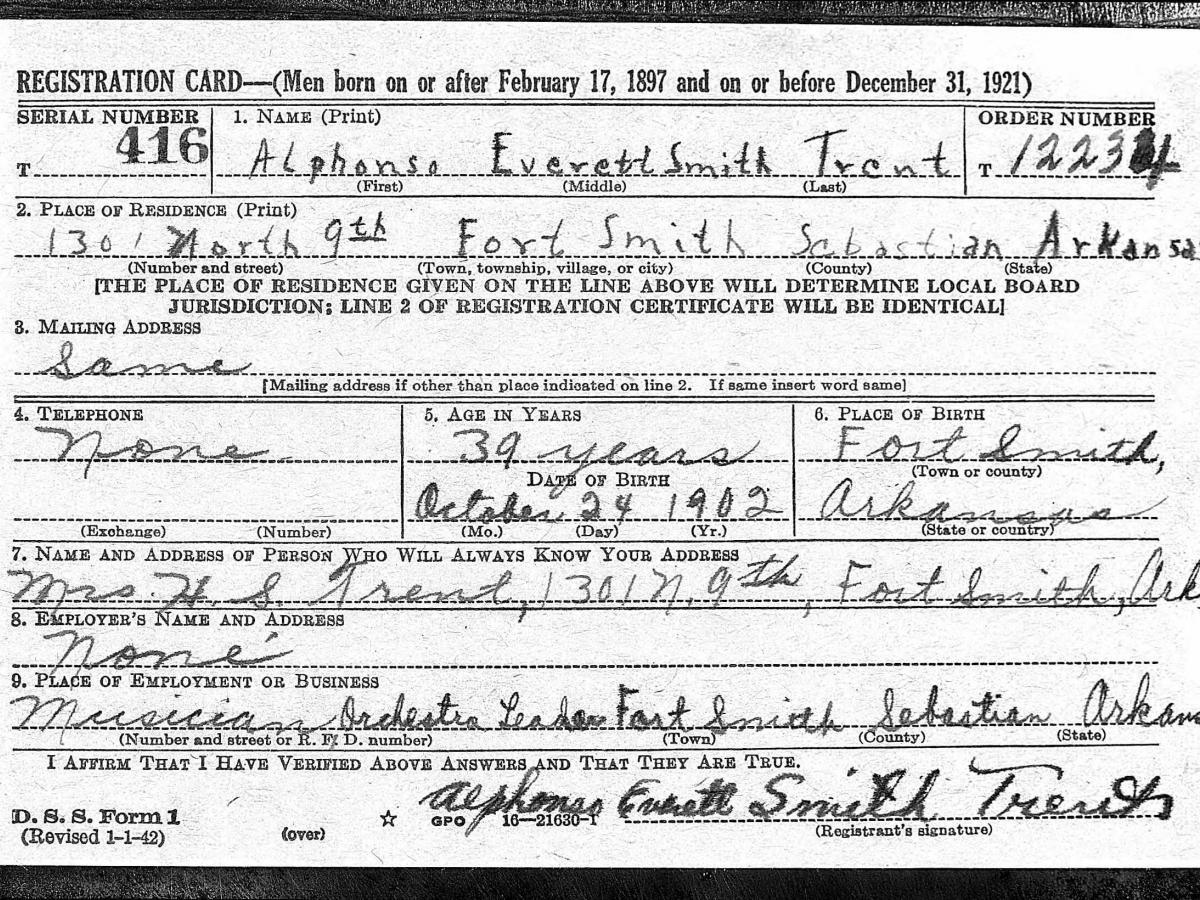 REGISTRATION CARD—(Men born on or after February 17, 1897 and on or before December 31, 1921)
SERIAL NUMBER 1. NAME (Print) ORDER NUMBER
T 416 Alphonso Everett Smith Trent T 1223
(First) (Middle) (Last)
2. PLACE OF RESIDENCE (Print)
1301 North 9th Fort Smith Sebastian Arkansa
(Number and street) (Town, township, village, or city) (County) (State)
[THE PLACE OF RESIDENCE GIVEN ON THE LINE ABOVE WILL DETERMINE LOCAL BOARD
JURISDICTION; LINE 2 OF REGISTRATION CERTIFICATE WILL BE IDENTICAL]
3. MAILING ADDRESS
Same
[Mailing address if other than place indicated on line 2. If same insert word same]
4. TELEPHONE 5. AGE IN YEARS 6. PLACE OF BIRTH
None 39 years Fort Smith,
(Town or county)
DATE OF BIRTH
October 24 1902 Arkansas
(Exchange) (Number) (Mo.) (Day) (Yr.) (State or country)
7. NAME AND ADDRESS OF PERSON WHO WILL ALWAYS KNOW YOUR ADDRESS
Mrs. H. S. Trent, 1301 N. 9th, Fort Smith, Ark
8. EMPLOYER'S NAME AND ADDRESS
None
9. PLACE OF EMPLOYMENT OR BUSINESS
Musician Orchestra Leader Fort Smith Sebastian Arkans
(Number and street or R. F. D. number) (Town) (County) (State)
I AFFIRM THAT I HAVE VERIFIED ABOVE ANSWERS AND THAT THEY ARE TRUE.
Alphonso Everett Smith Trent
D. S. S. Form 1 GPO 16—21630-1
(Revised 1-1-42) (over) (Registrant's signature)